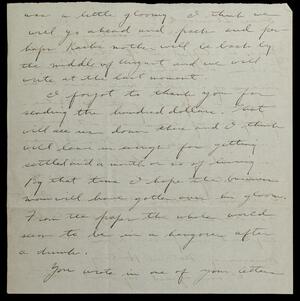 was a little gloomy. I think we
will go ahead and pack and per-
haps mother will be back by
the middle of August and we will
write at the last moment.
I forgot to thank you for
sending the hundred dollars. That
will see us down there and I think
will leave us enough for getting
settled and a month or so of living
By that time I hope the business
men will have gotten over the gloom.
From the paper the whole world
seem to be in a hangover after
a drunk.
You wrote in one of your letters